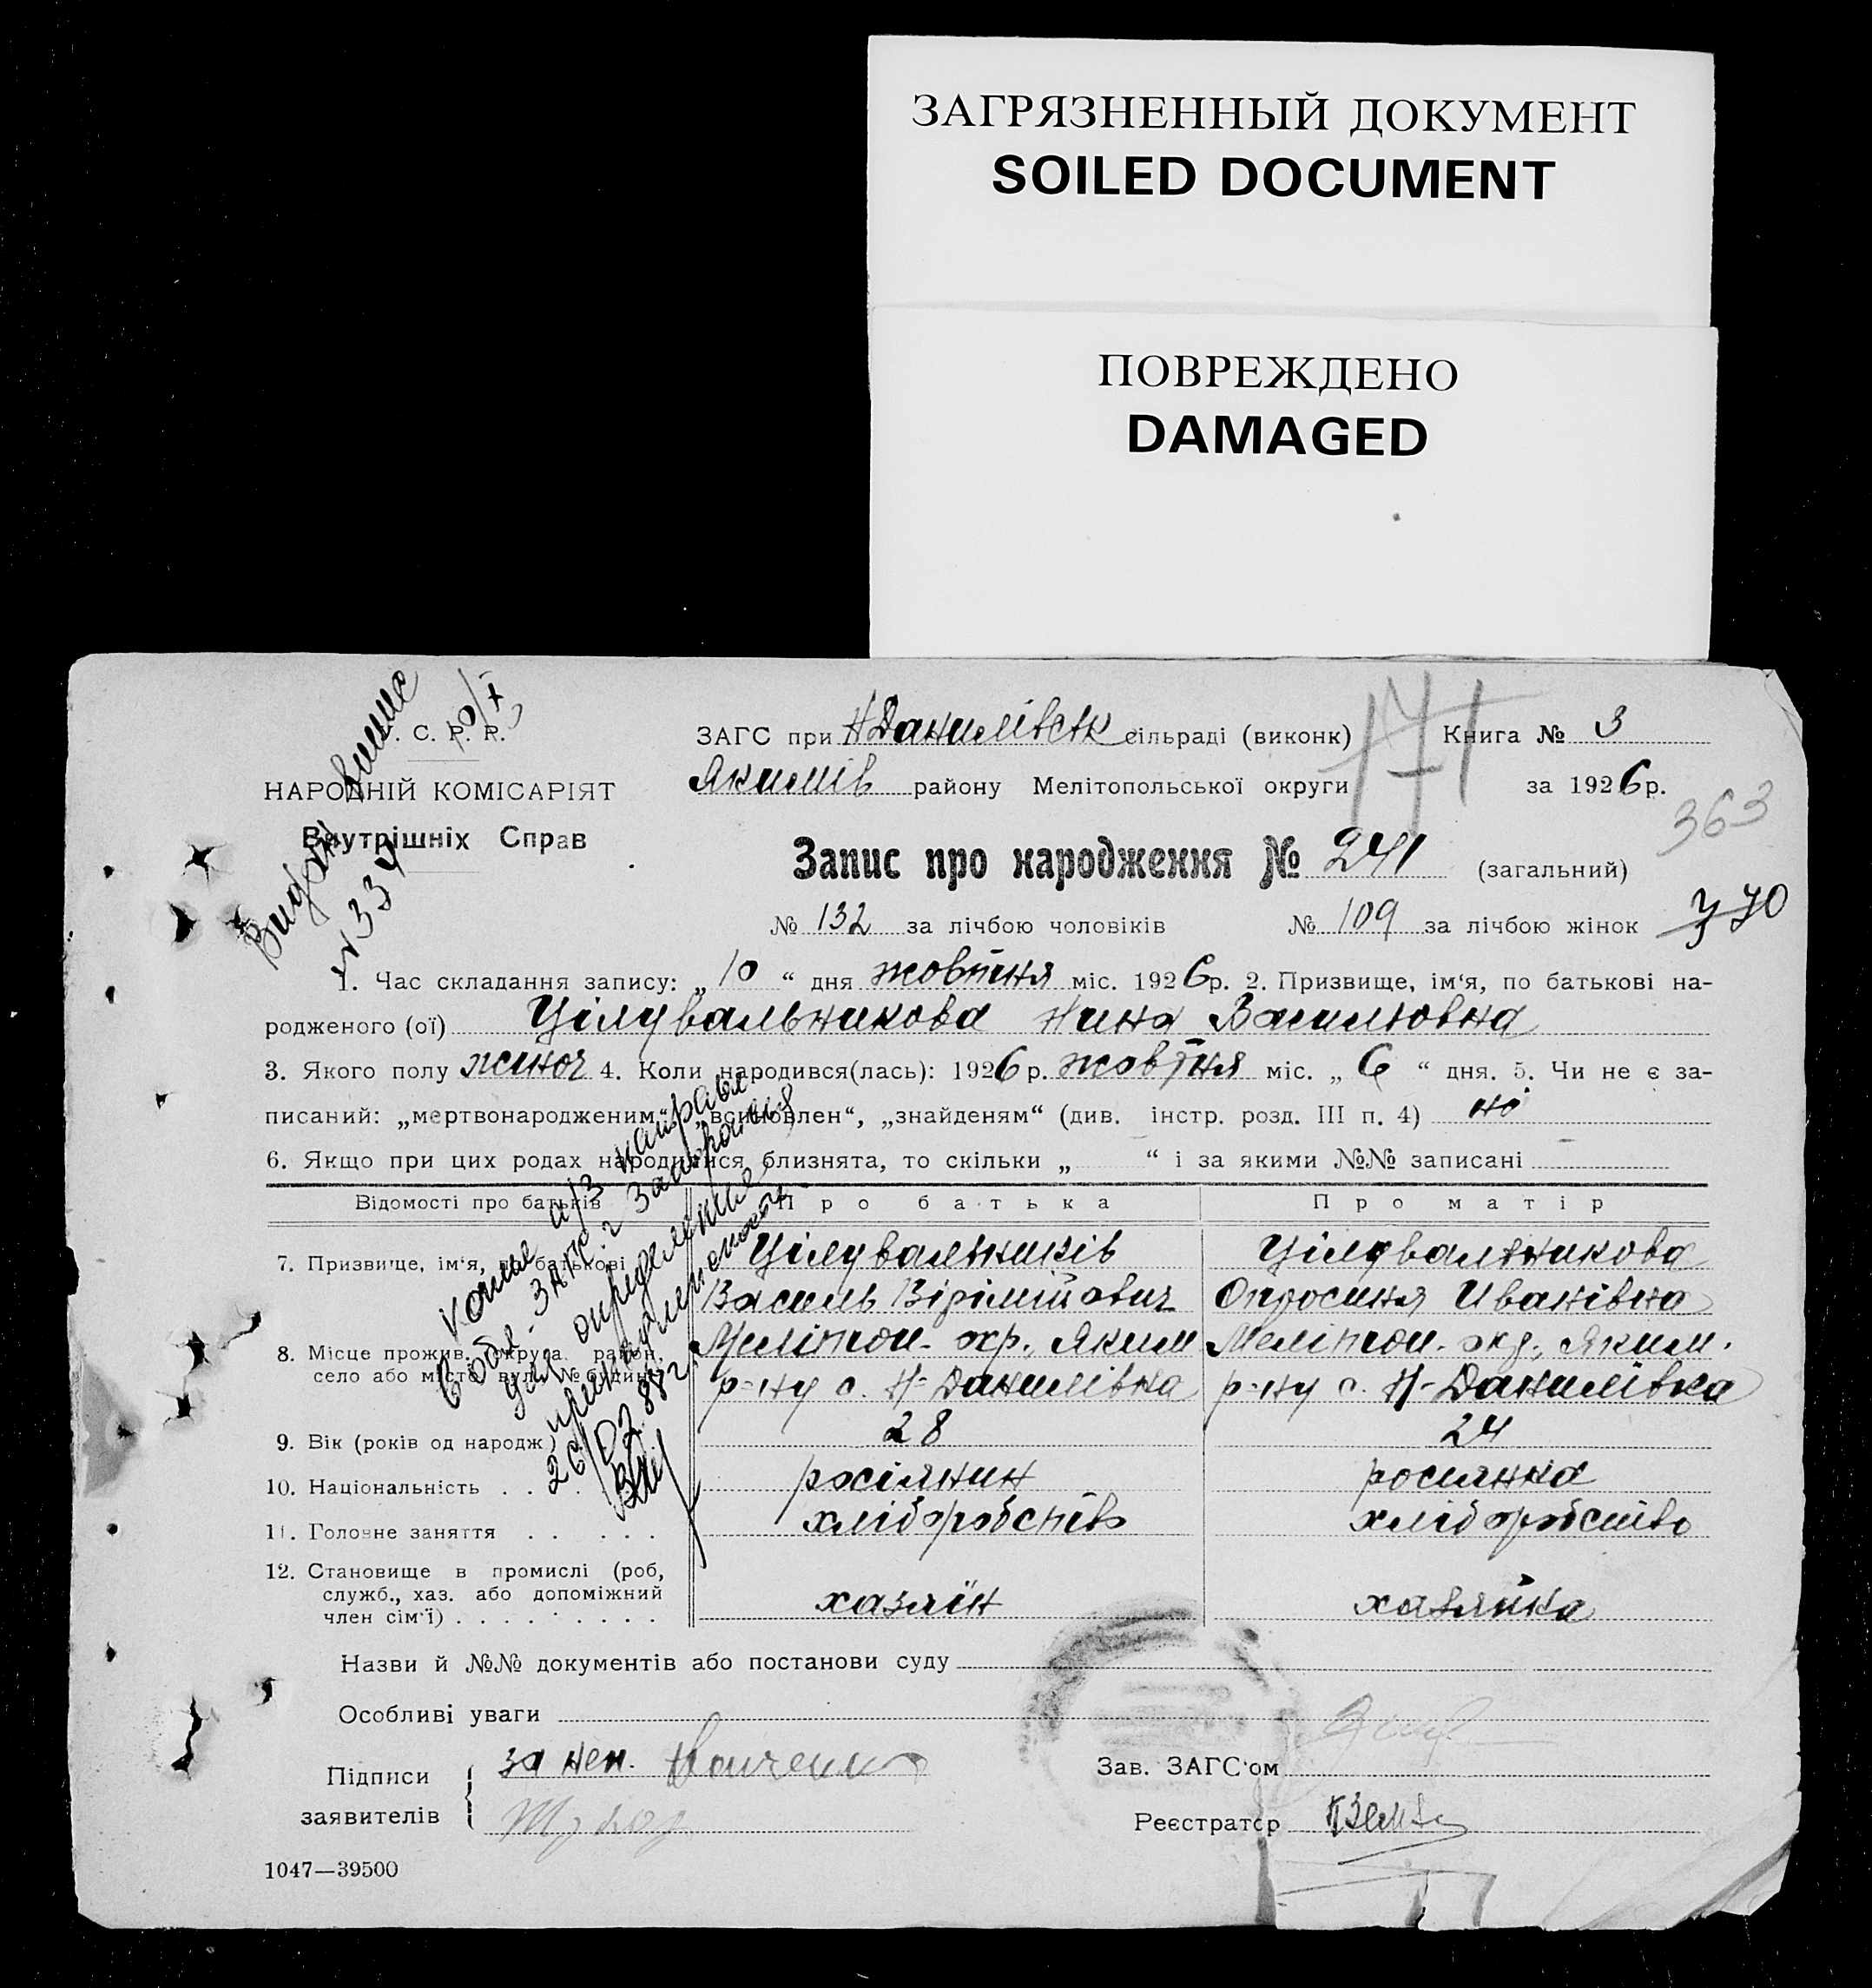 ЗАГРЯЗНЕННЫЙ ДОКУМЕНТ
SOILED DOCUMENT
ПОВРЕЖДЕНО
DAMAGED
С. Р. Р.
10/X
НАРОДНІЙ КОМІСАРІЯТ
Внутрішніх Справ
Видан выпис
№ 334
ЗАГС при Н Данилівськ сільраді (виконк)
Якимів району Мелітопольської округи
171
Книга № 3
за 1926 р.
363
Запис про народження № 241 (загальний)
№ 132 за лічбою чоловіків № 109 за лічбою жінок
370
1. Час складання запису: „ 10 “ дня жовтня міс. 1926 р. 2. Призвище, ім‘я, по батькові на-
родженого (ої) Цілувальникова Нина Василювна
3. Якого полу жіноч 4. Коли народився(лась): 1926 р. жовтня міс. „ 6 “ дня. 5. Чи не є за-
писаний: „мертвонародженим“, „всиновлен“, „знайденям“ (див. інстр. розд. III п. 4) ні
6. Якщо при цих родах народилися близнята, то скільки „ “ і за якими №№ записані
Відомості про батьків Про батька Про матір
7. Призвище, ім'я, по батькові Цілувальників Цілувальникова
Василь Опросиня Иванівна
8. Місце прожив. округа район, Мелітоп. окр., Яким Мелітоп. окр., Яким.
село або місто, вул. № будин. р-ну с. Н-Данилівка р-ну с. Н-Данилівка
9. Вік (років од народж.) 28 24
10. Національність . . . росіянин росиянка
11. Головне заняття . . . . . хліборобств хліборобство
12. Становище в промислі (роб,
служб., хаз. або допоміжний
член сім‘ї) . . . . . . . . . хазяїн хазяйка
копие а/з направл
в обл. ЗАГС г Запорожья
для определение
26/02. 88г.
Назви й №№ документів або постанови суду
Особливі уваги
Підписи
заявителів
за неп.
Зав. ЗАГС‘ом
Реєстратор
1047—39500